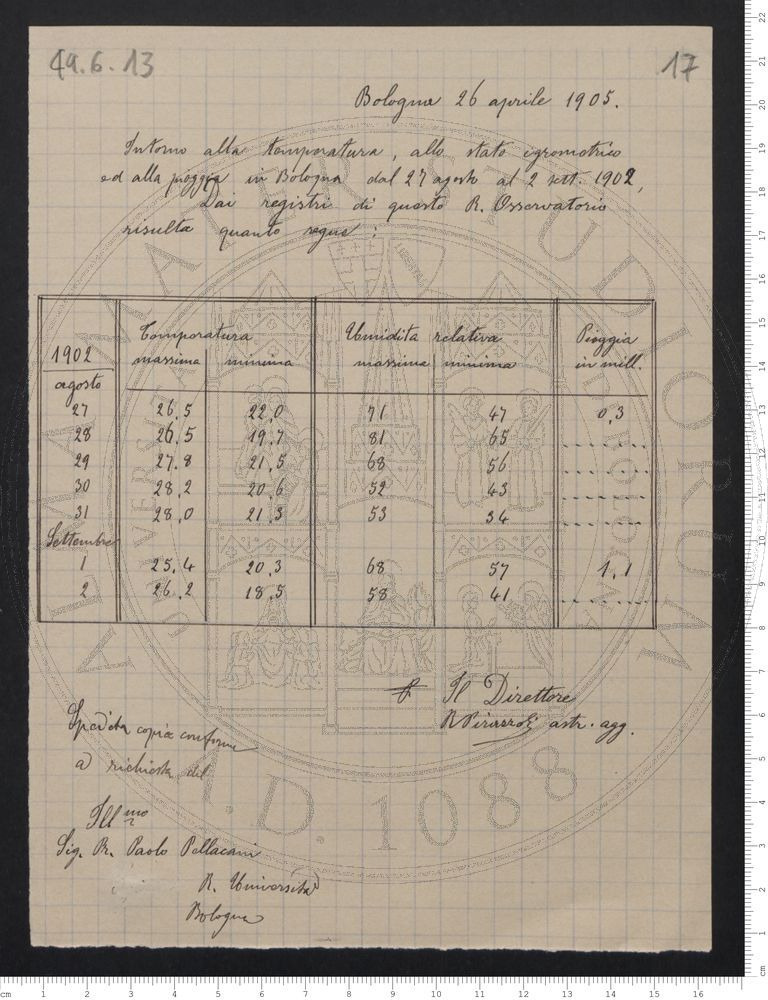 49.6.13
17
Bologna 26 aprile 1905.
Intorno alla temperatura, allo stato igrometrico
ed alla pioggia in Bologna dal 27 agosto al 2 sett. 1902,
Dai registri di questo R. Osservatorio
risulta quanto segue :
1902 Temperatura Umidità relativa Pioggia
massima minima massima minima in mill.
agosto
27 26,5 22,0 71 47 0,3
28 26,5 19,7 81 65 .......
29 27,8 21,5 68 56 .......
30 28,2 20,6 52 43 .......
31 28,0 21,3 53 34 .......
Settembre
1 25,4 20,3 68 57 1,1
2 26,2 18,5 58 41 .......
Il Direttore
astr. agg.
Spedita copia conforme
a richiesta del
Ill.mo
Sig. Paolo Pellacani
R. Università
Bologna
ALMA MATER STUDIORUM
A.D. 1088